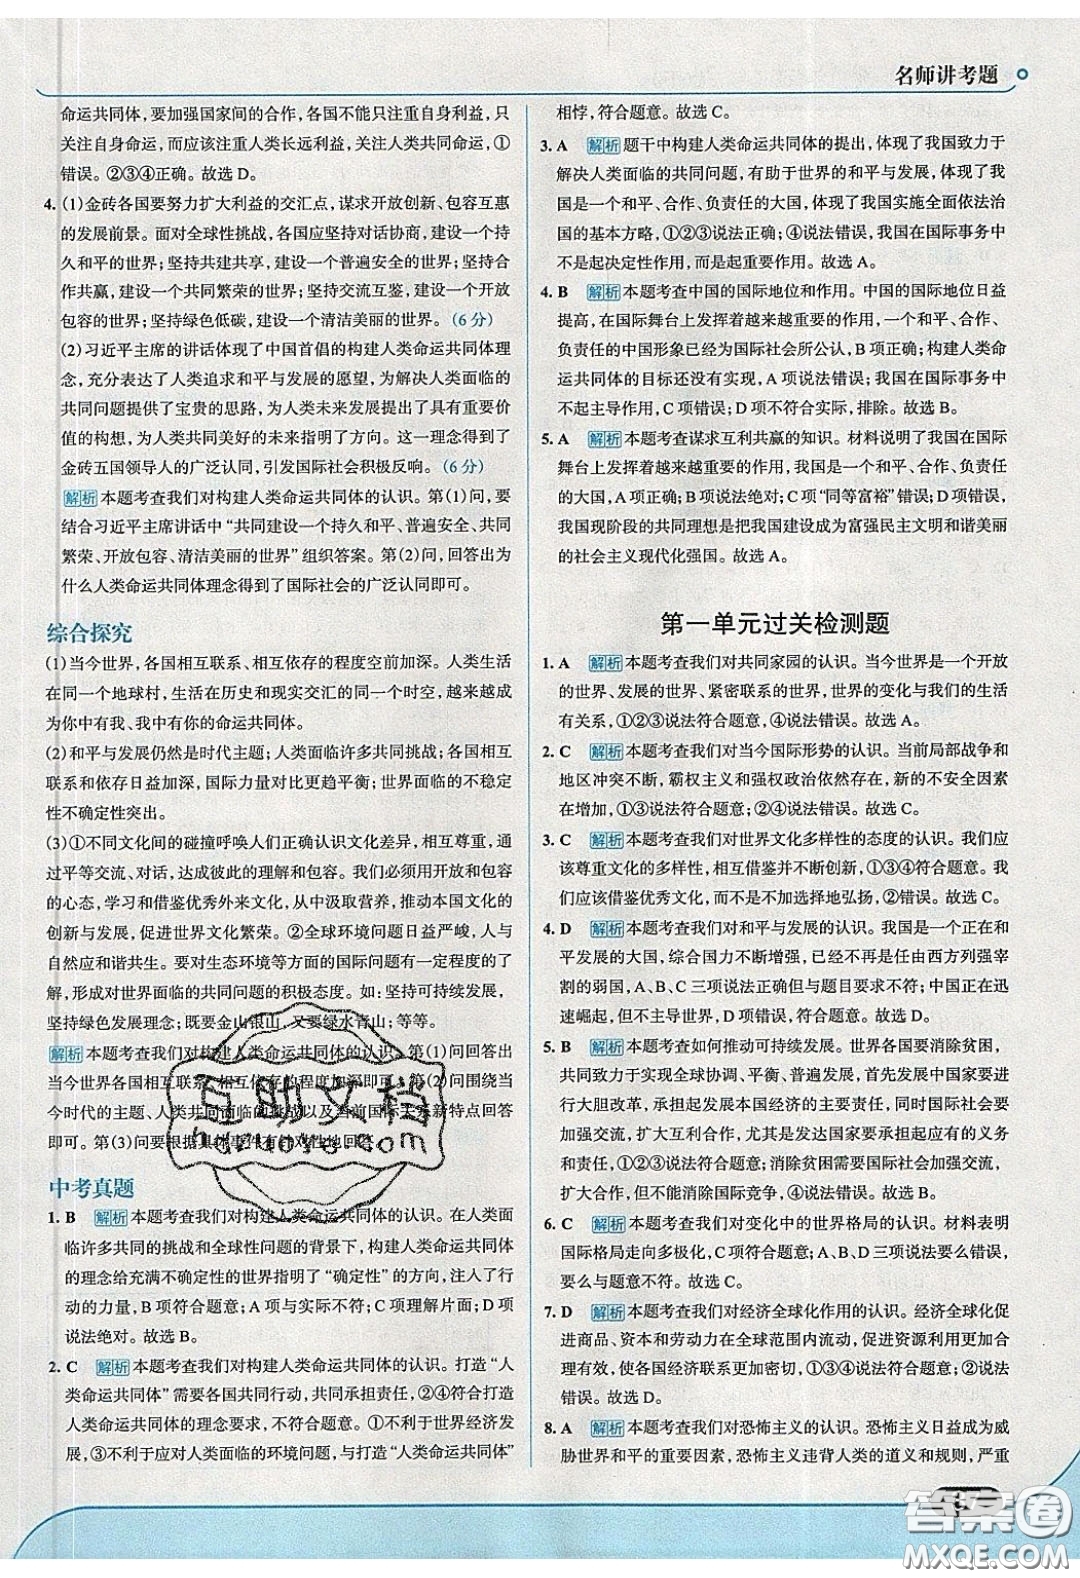 名师讲考题
命运共同体，要加强国家间的合作，各国不能只注重自身利益，只
关注自身命运，而应该注重人类长远利益，关注人类共同命运，①
错误。②③④正确。故选D。
4. (1)金砖各国要努力扩大利益的交汇点，谋求开放创新、包容互惠
的发展前景。面对全球性挑战，各国应坚持对话协商，建设一个持
久和平的世界；坚持共建共享，建设一个普遍安全的世界；坚持合
作共赢，建设一个共同繁荣的世界；坚持交流互鉴，建设一个开放
包容的世界；坚持绿色低碳，建设一个清洁美丽的世界。(6分)
(2)习近平主席的讲话体现了中国首倡的构建人类命运共同体理
念，充分表达了人类追求和平与发展的愿望，为解决人类面临的
共同问题提供了宝贵的思路，为人类未来发展提出了具有重要价
值的构想，为人类共同美好的未来指明了方向。这一理念得到了
金砖五国领导人的广泛认同，引发国际社会积极反响。(6分)
解析 本题考查我们对构建人类命运共同体的认识。第(1)问，要
结合习近平主席讲话中“共同建设一个持久和平、普遍安全、共同
繁荣、开放包容、清洁美丽的世界”组织答案。第(2)问，回答出为
什么人类命运共同体理念得到了国际社会的广泛认同即可。
综合探究
(1)当今世界，各国相互联系、相互依存的程度空前加深。人类生活
在同一个地球村，生活在历史和现实交汇的同一个时空，越来越成
为你中有我、我中有你的命运共同体。
(2)和平与发展仍然是时代主题；人类面临许多共同挑战；各国相互
联系和依存日益加深，国际力量对比更趋平衡；世界面临的不稳定
性不确定性突出。
(3)①不同文化间的碰撞呼唤人们正确认识文化差异，相互尊重，通
过平等交流、对话，达成彼此的理解和包容。我们必须用开放和包容
的心态，学习和借鉴优秀外来文化，从中汲取营养，推动本国文化的
创新与发展，促进世界文化繁荣。②全球环境问题日益严峻，人与
自然应和谐共生。要对生态环境等方面的国际问题有一定程度的了
解，形成对世界面临的共同问题的积极态度。如：坚持可持续发展，
坚持绿色发展理念；既要金山银山，又要绿水青山；等等。
解析 本题考查我们对构建人类命运共同体的认识。第(1)问回答出
当今世界各国相互联系、相互依存的程度加深即可；第(2)问围绕当
今时代的主题、人类共同面临的挑战以及当前国际关系新特点回答
即可。第(3)问要根据具体事件有针对性地回答。
中考真题
1. B 解析 本题考查我们对构建人类命运共同体的认识。在人类面
临许多共同的挑战和全球性问题的背景下，构建人类命运共同体
的理念给充满不确定性的世界指明了“确定性”的方向，注入了行
动的力量，B项符合题意；A项与实际不符；C项理解片面；D项
说法绝对。故选B。
2. C 解析 本题考查我们对构建人类命运共同体的认识。打造“人
类命运共同体”需要各国共同行动，共同承担责任，②④符合打造
人类命运共同体的理念要求，不符合题意。①不利于世界经济发
展，③不利于应对人类面临的环境问题，与打造“人类命运共同体”
相悖，符合题意。故选C。
3. A 解析 题干中构建人类命运共同体的提出，体现了我国致力于
解决人类面临的共同问题，有助于世界的和平与发展，体现了我
国是一个和平、合作、负责任的大国，体现了我国实施全面依法治
国的基本方略，①②③说法正确；④说法错误，我国在国际事务中
不是起决定性作用，而是起重要作用。故选A。
4. B 解析 本题考查中国的国际地位和作用。中国的国际地位日益
提高，在国际舞台上发挥着越来越重要的作用，一个和平、合作、
负责任的中国形象已经为国际社会所公认，B项正确；构建人类命
运共同体的目标还没有实现，A项说法错误；我国在国际事务中
不起主导作用，C项错误；D项不符合实际，排除。故选B。
5. A 解析 本题考查谋求互利共赢的知识。材料说明了我国在国际
舞台上发挥着越来越重要的作用，我国是一个和平、合作、负责任
的大国，A项正确；B项说法绝对；C项“同等富裕”错误；D项错误，
我国现阶段的共同理想是把我国建设成为富强民主文明和谐美丽
的社会主义现代化强国。故选A。
第一单元过关检测题
1. A 解析 本题考查我们对共同家园的认识。当今世界是一个开放
的世界、发展的世界、紧密联系的世界，世界的变化与我们的生活
有关系，①②③说法符合题意，④说法错误。故选A。
2. C 解析 本题考查我们对当今国际形势的认识。当前局部战争和
地区冲突不断，霸权主义和强权政治依然存在，新的不安全因素
在增加，①③说法符合题意；②④说法错误。故选C。
3. C 解析 本题考查我们对世界文化多样性的态度的认识。我们应
该尊重文化的多样性，相互借鉴并不断创新，①③④符合题意。我
们应该借鉴优秀文化，而不是不加选择地弘扬，②错误。故选C。
4. D 解析 本题考查我们对和平与发展的认识。我国是一个正在和
平发展的大国，综合国力不断增强，已经不再是任由西方列强宰
割的弱国，A、B、C三项说法错误或与题目要求不符；中国正在迅
速崛起，但不主导世界，D项错误，符合题意。故选D。
5. B 解析 本题考查如何推动可持续发展。世界各国要消除贫困，
共同致力于实现全球协调、平衡、普遍发展，首先发展中国家要进
行大胆改革，承担起发展本国经济的主要责任，同时国际社会要
加强交流，扩大互利合作，尤其是发达国家要承担起应有的义务
和责任，①②③说法符合题意；消除贫困需要国际社会加强交流，
扩大合作，但不能消除国际竞争，④说法错误。故选B。
6. C 解析 本题考查我们对变化中的世界格局的认识。材料表明
国际格局走向多极化，C项符合题意；A、B、D三项说法要么错误，
要么与题意不符。故选C。
7. D 解析 本题考查我们对经济全球化作用的认识。经济全球化促
进商品、资本和劳动力在全球范围内流动，促进资源利用更加合
理有效，使各国经济联系更加密切，①③④说法符合题意；②说法
错误。故选D。
8. A 解析 本题考查我们对恐怖主义的认识。恐怖主义日益成为威
胁世界和平的重要因素，恐怖主义违背人类的道义和规则，严重
互助文档
hdzuoye.com
答案圈
MXQE.COM